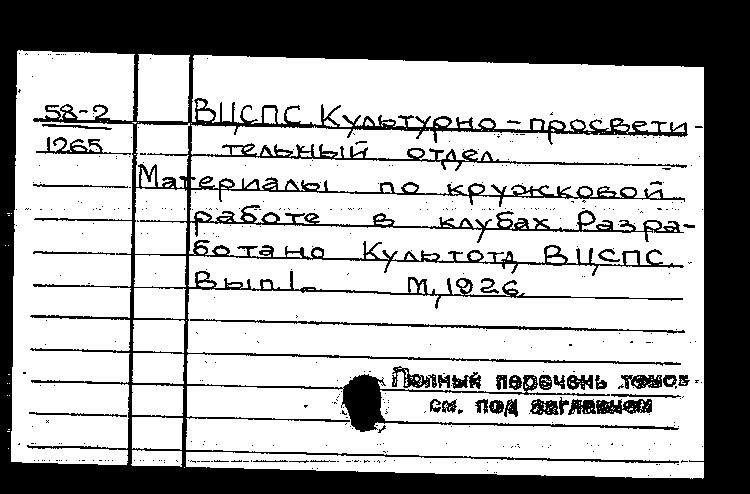 58-2
1265
ВЦСПС. Культурно-просвети-
тельный отдел.
Материалы по кружковой
работе в клубах. Разра-
ботано Культотд. ВЦСПС.
Вып.1- М., 1926.
Полный перечень томов
см. под заглавием